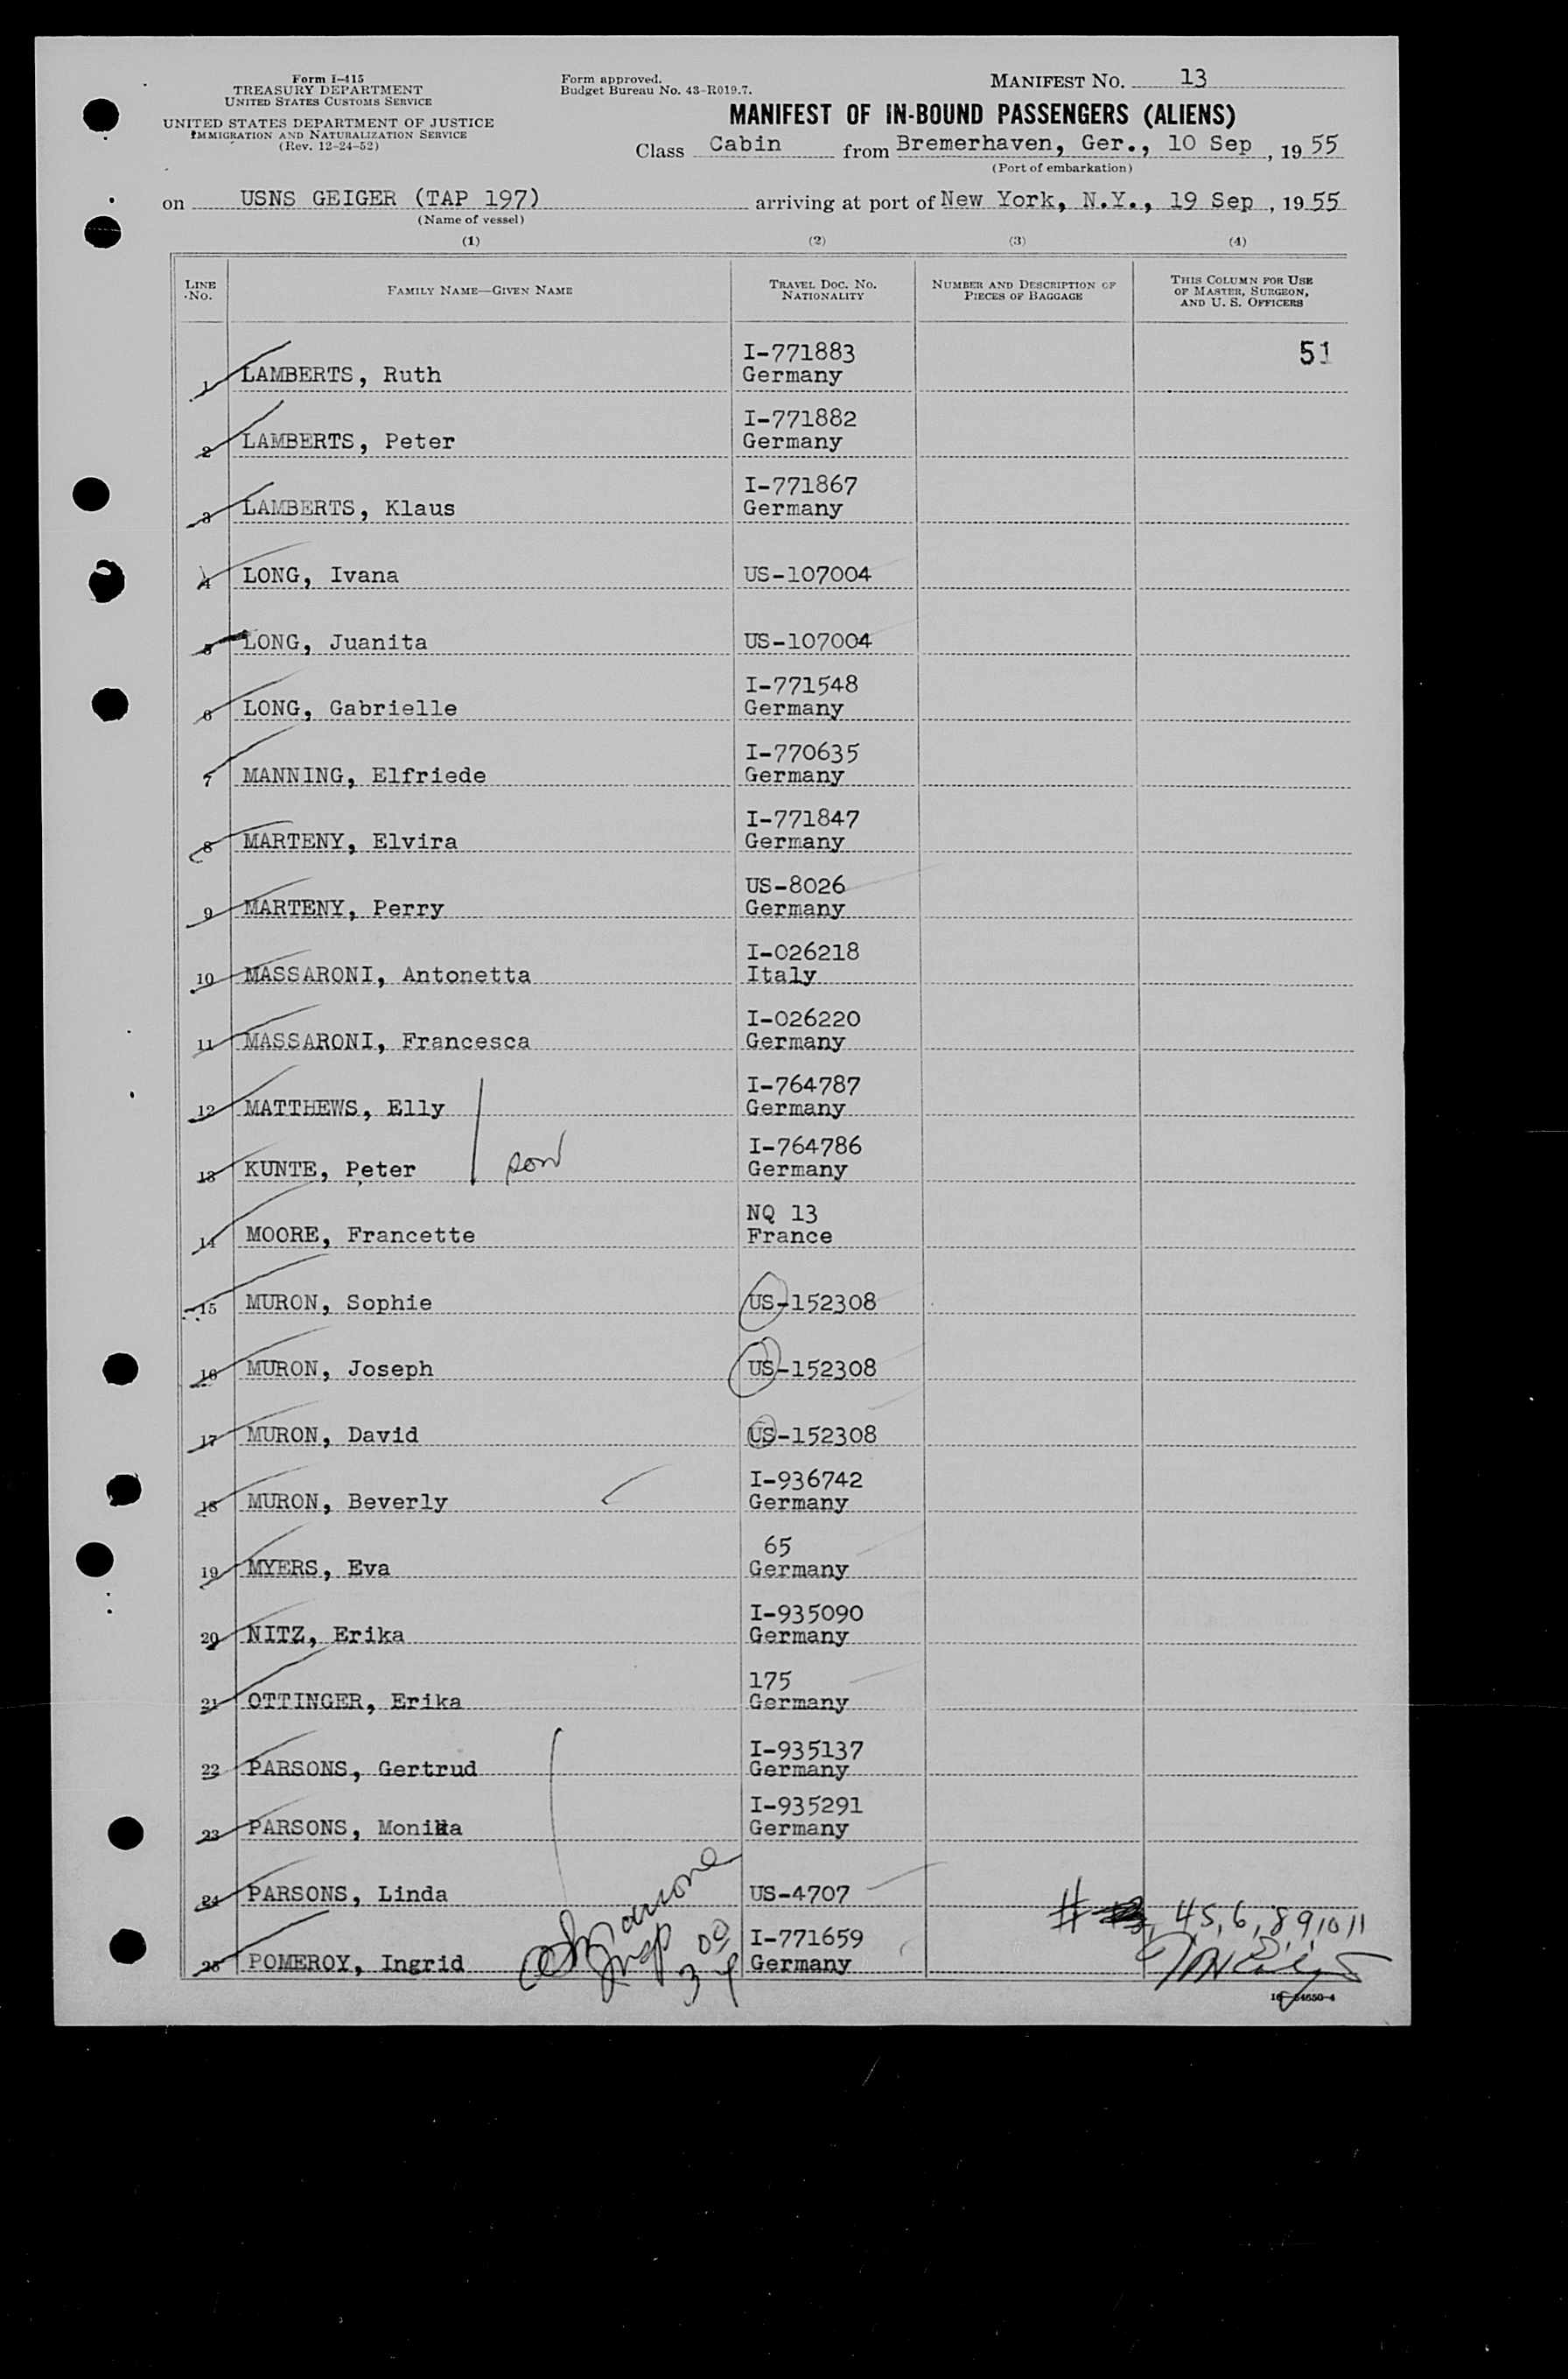 Form I-415
TREASURY DEPARTMENT
UNITED STATES CUSTOMS SERVICE
UNITED STATES DEPARTMENT OF JUSTICE
IMMIGRATION AND NATURALIZATION SERVICE
(Rev. 12-24-52)
Form approved.
Budget Bureau No. 43-R019.7.
MANIFEST NO. 13
MANIFEST OF IN-BOUND PASSENGERS (ALIENS)
Class Cabin from Bremerhaven, Ger., 10 Sep, 1955
(Port of embarkation)
on USNS GEIGER (TAP 197) arriving at port of New York, N.Y., 19 Sep, 1955
(Name of vessel)
(1) (2) (3) (4)
LINE NO. FAMILY NAME—GIVEN NAME TRAVEL DOC. NO. NATIONALITY NUMBER AND DESCRIPTION OF PIECES OF BAGGAGE THIS COLUMN FOR USE OF MASTER, SURGEON, AND U. S. OFFICERS
I-771883 51
1 LAMBERTS, Ruth Germany
I-771882
2 LAMBERTS, Peter Germany
I-771867
3 LAMBERTS, Klaus Germany
4 LONG, Ivana US-107004
5 LONG, Juanita US-107004
I-771548
6 LONG, Gabrielle Germany
I-770635
7 MANNING, Elfriede Germany
I-771847
8 MARTENY, Elvira Germany
US-8026
9 MARTENY, Perry Germany
I-026218
10 MASSARONI, Antonetta Italy
I-026220
11 MASSARONI, Francesca Germany
I-764787
12 MATTHEWS, Elly Germany
I-764786
13 KUNTE, Peter son Germany
NQ 13
14 MOORE, Francette France
15 MURON, Sophie US-152308
16 MURON, Joseph US-152308
17 MURON, David US-152308
I-936742
18 MURON, Beverly Germany
65
19 MYERS, Eva Germany
I-935090
20 NITZ, Erika Germany
175
21 OTTINGER, Erika Germany
I-935137
22 PARSONS, Gertrud Germany
I-935291
23 PARSONS, Monika Germany
24 PARSONS, Linda US-4707
# 4,5,6,8,9,10,11
I-771659
25 POMEROY, Ingrid Germany
16—64650-4